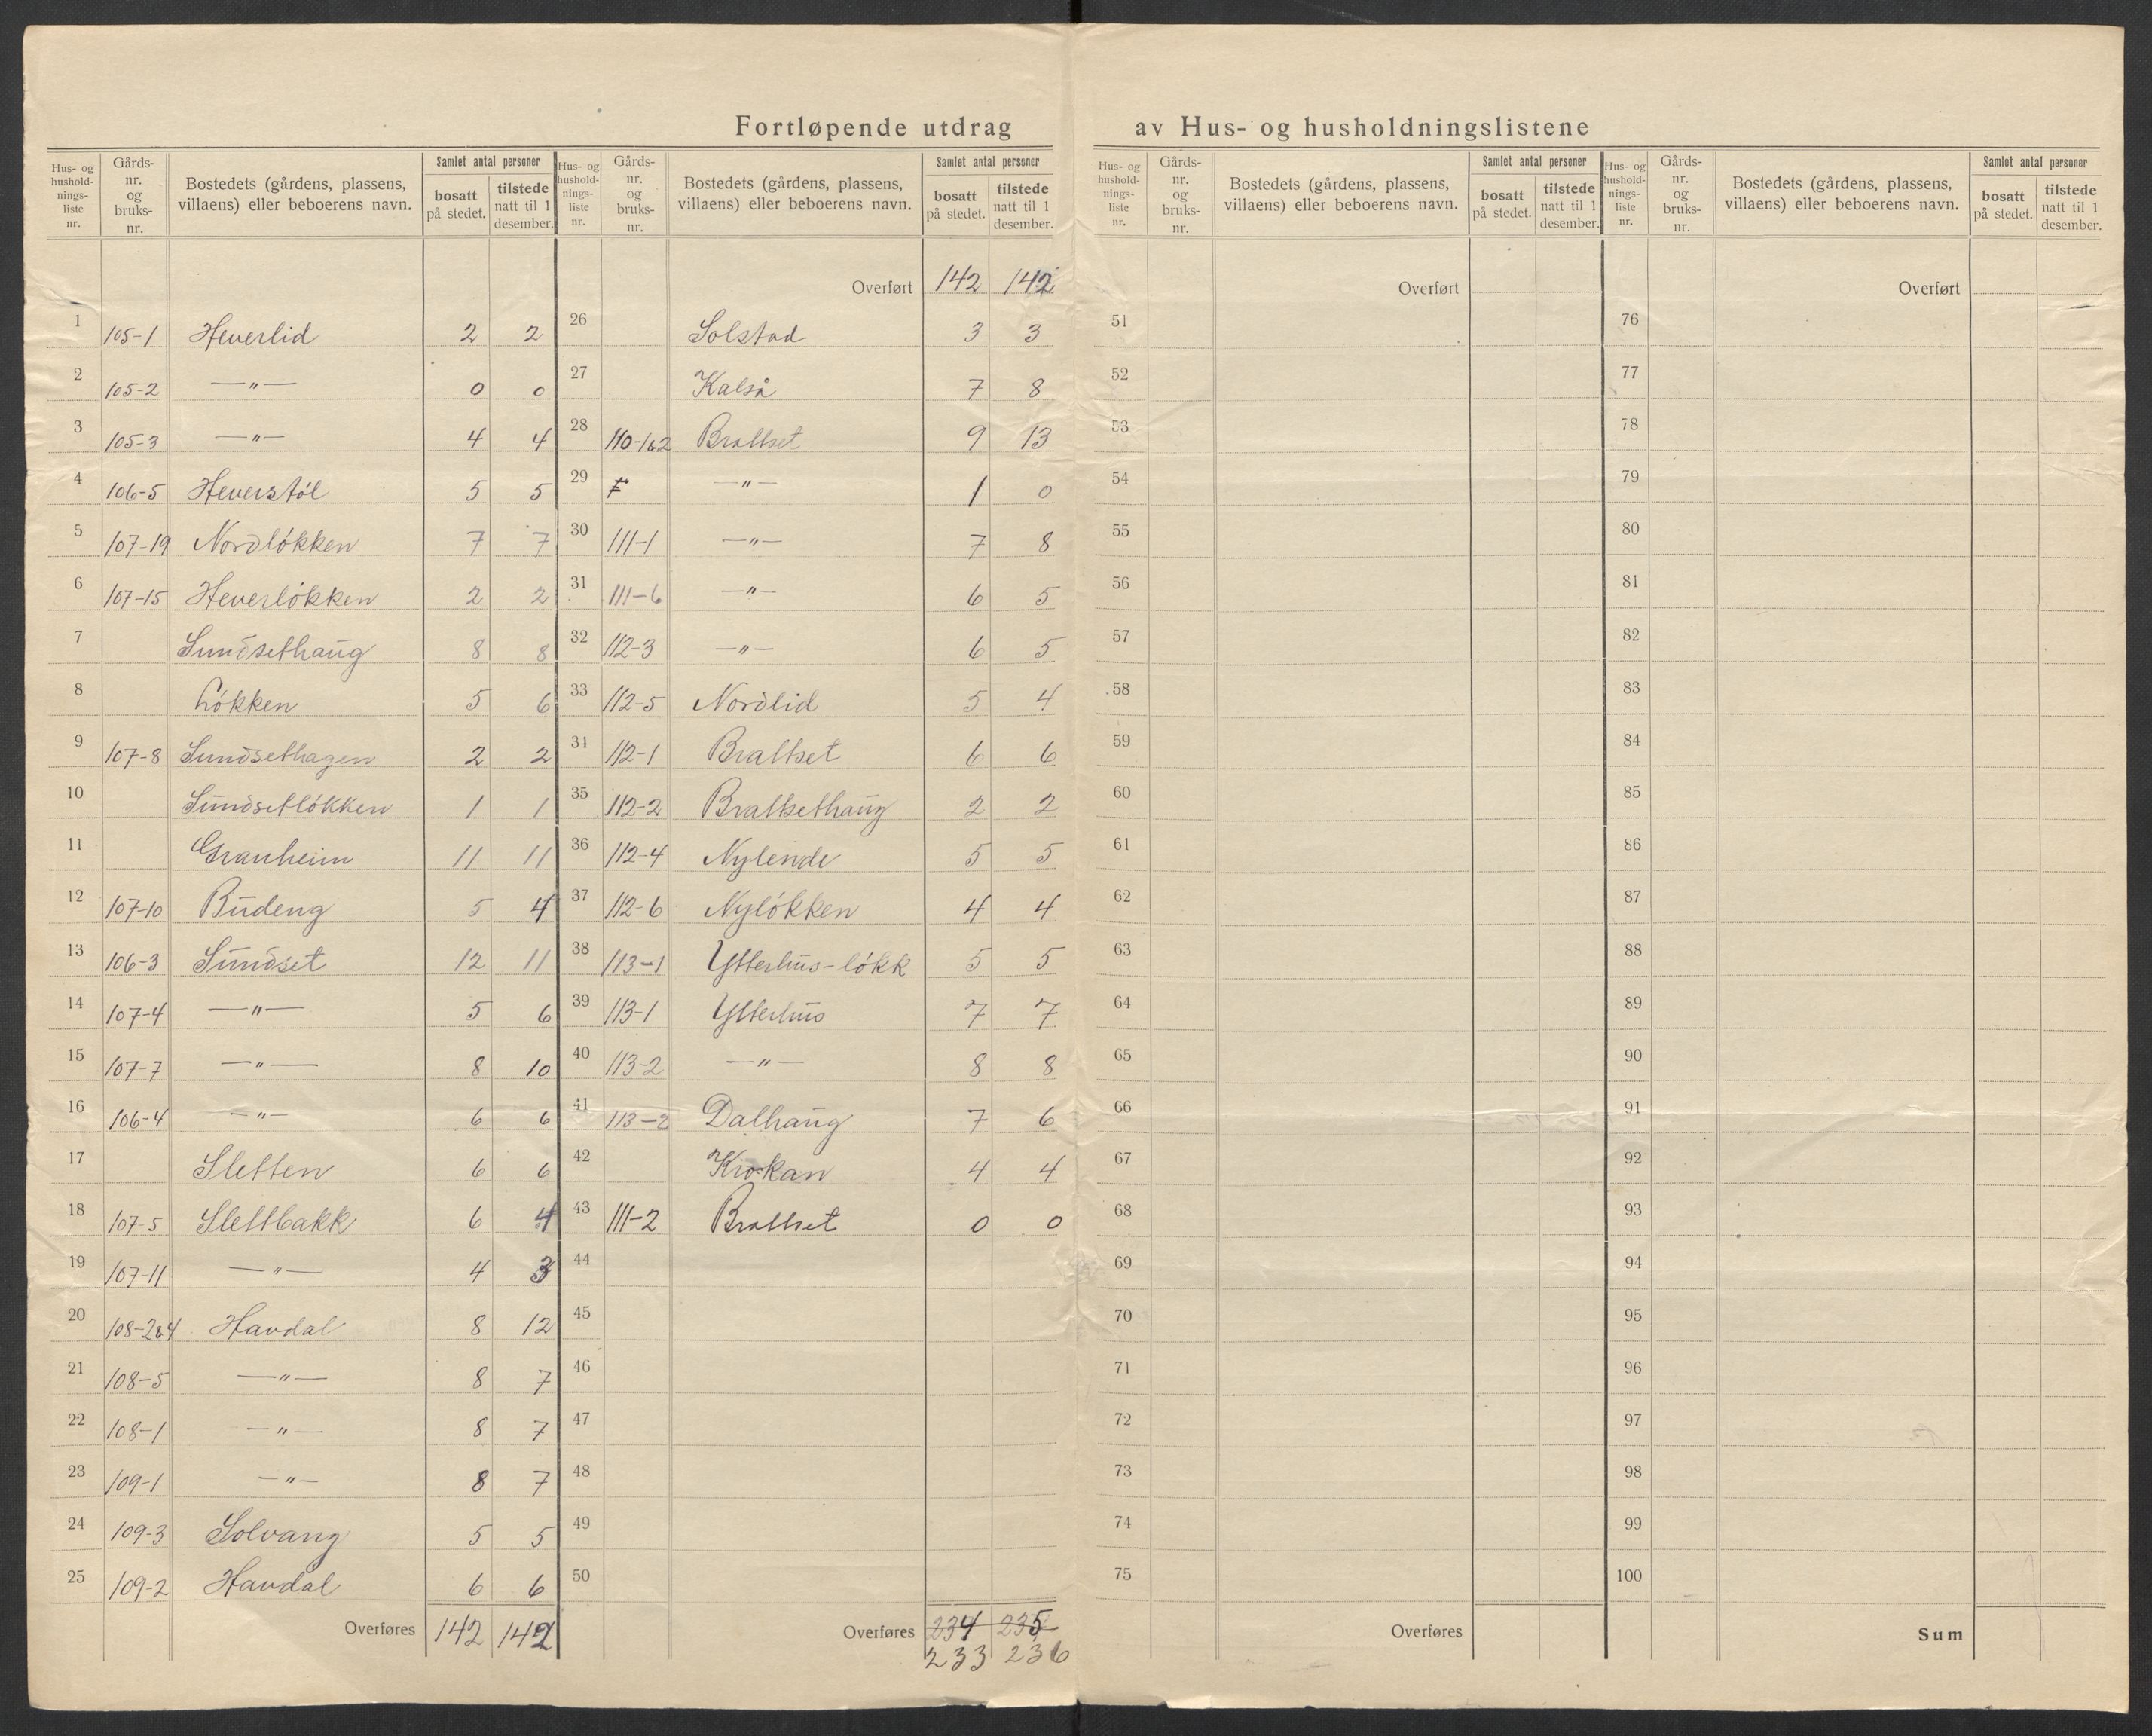 Fortløpende utdrag av Hus- og husholdningslistene
Hus- og hushold-nings-liste nr. Gårds-nr. og bruks-nr. Bostedets (gårdens, plassens, villaens) eller beboerens navn. Samlet antal personer bosatt på stedet. tilstede natt til 1 desember.
1 105-1 Heverlid 2 2
2 105-2 —"— 0 0
3 105-3 —"— 4 4
4 106-5 Heverstøl 5 5
5 107-19 Nordløkken 7 7
6 107-15 Heverløkken 2 2
7 Sundsethaug 8 8
8 Løkken 5 6
9 107-8 Sundsethagen 2 2
10 Sundsetløkken 1 1
11 Granheim 11 11
12 107-10 Budeng 5 4
13 106-3 Sundset 12 11
14 107-4 —"— 5 6
15 107-7 —"— 8 10
16 106-4 —"— 6 6
17 Sletten 6 6
18 107-5 Slettbakk 6 4
19 107-11 —"— 4 3
20 108-2&4 Havdal 8 12
21 108-5 —"— 8 7
22 108-1 —"— 8 7
23 109-1 —"— 8 7
24 109-3 Solvang 5 5
25 109-2 Havdal 6 6
Overføres 142 142
Hus- og hushold-nings-liste nr. Gårds-nr. og bruks-nr. Bostedets (gårdens, plassens, villaens) eller beboerens navn. Samlet antal personer bosatt på stedet. tilstede natt til 1 desember.
Overført 142 142
26 Solstad 3 3
27 Kalså 7 8
28 110-1&2 Brattset 9 13
29 F —"— 1 0
30 111-1 —"— 7 8
31 111-6 —"— 6 5
32 112-3 —"— 6 5
33 112-5 Nordlid 5 4
34 112-1 Brattset 6 6
35 112-2 Brattsethaug 2 2
36 112-4 Nylende 5 5
37 112-6 Nyløkken 4 4
38 113-1 Ytterhus-løkk 5 5
39 113-1 Ytterhus 7 7
40 113-2 —"— 8 8
41 113-2 Dalhaug 7 6
42 Krokan 4 4
43 111-2 Brattset 0 0
44
45
46
47
48
49
50
Overføres 234 235
233 236
Hus- og hushold-nings-liste nr. Gårds-nr. og bruks-nr. Bostedets (gårdens, plassens, villaens) eller beboerens navn. Samlet antal personer bosatt på stedet. tilstede natt til 1 desember.
Overført
51
52
53
54
55
56
57
58
59
60
61
62
63
64
65
66
67
68
69
70
71
72
73
74
75
Overføres
Hus- og hushold-nings-liste nr. Gårds-nr. og bruks-nr. Bostedets (gårdens, plassens, villaens) eller beboerens navn. Samlet antal personer bosatt på stedet. tilstede natt til 1 desember.
Overført
76
77
78
79
80
81
82
83
84
85
86
87
88
89
90
91
92
93
94
95
96
97
98
99
100
Sum